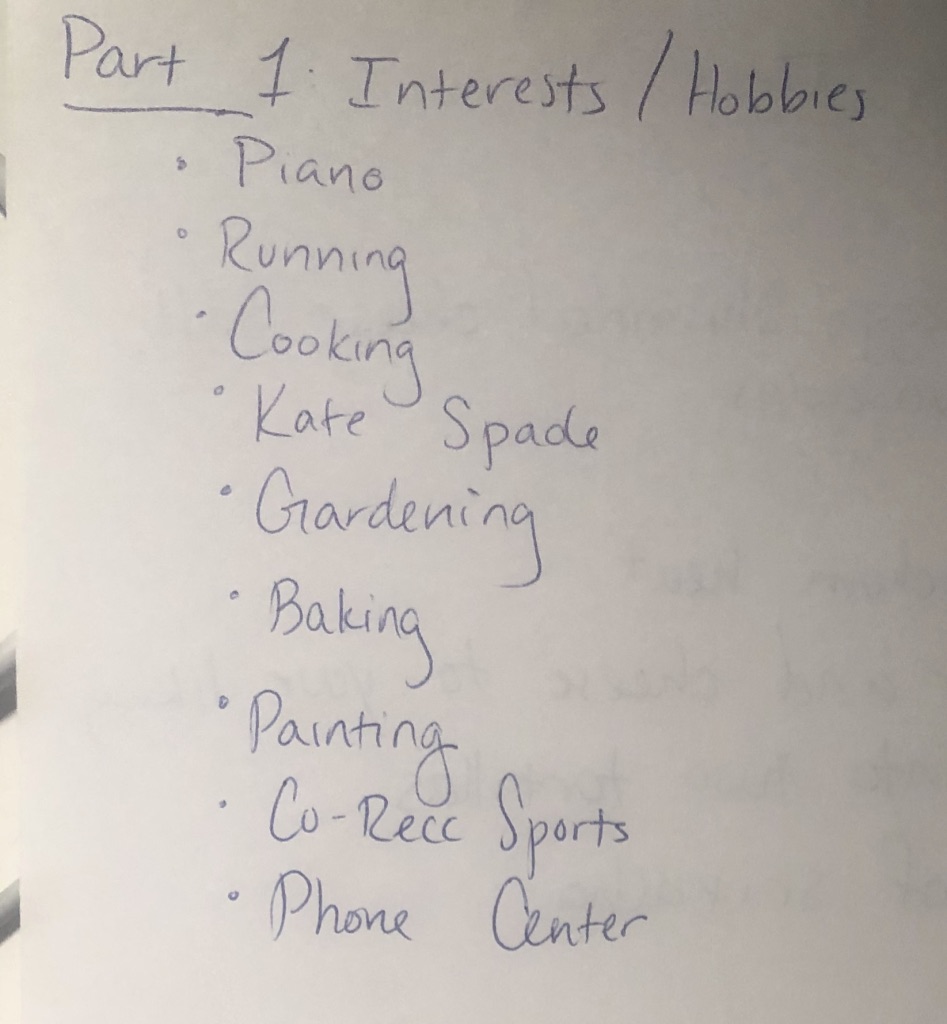 Part 1: Interests / Hobbies
• Piano
• Running
• Cooking
• Kate Spade
• Gardening
• Baking
• Painting
• Co-Recc Sports
• Phone Center